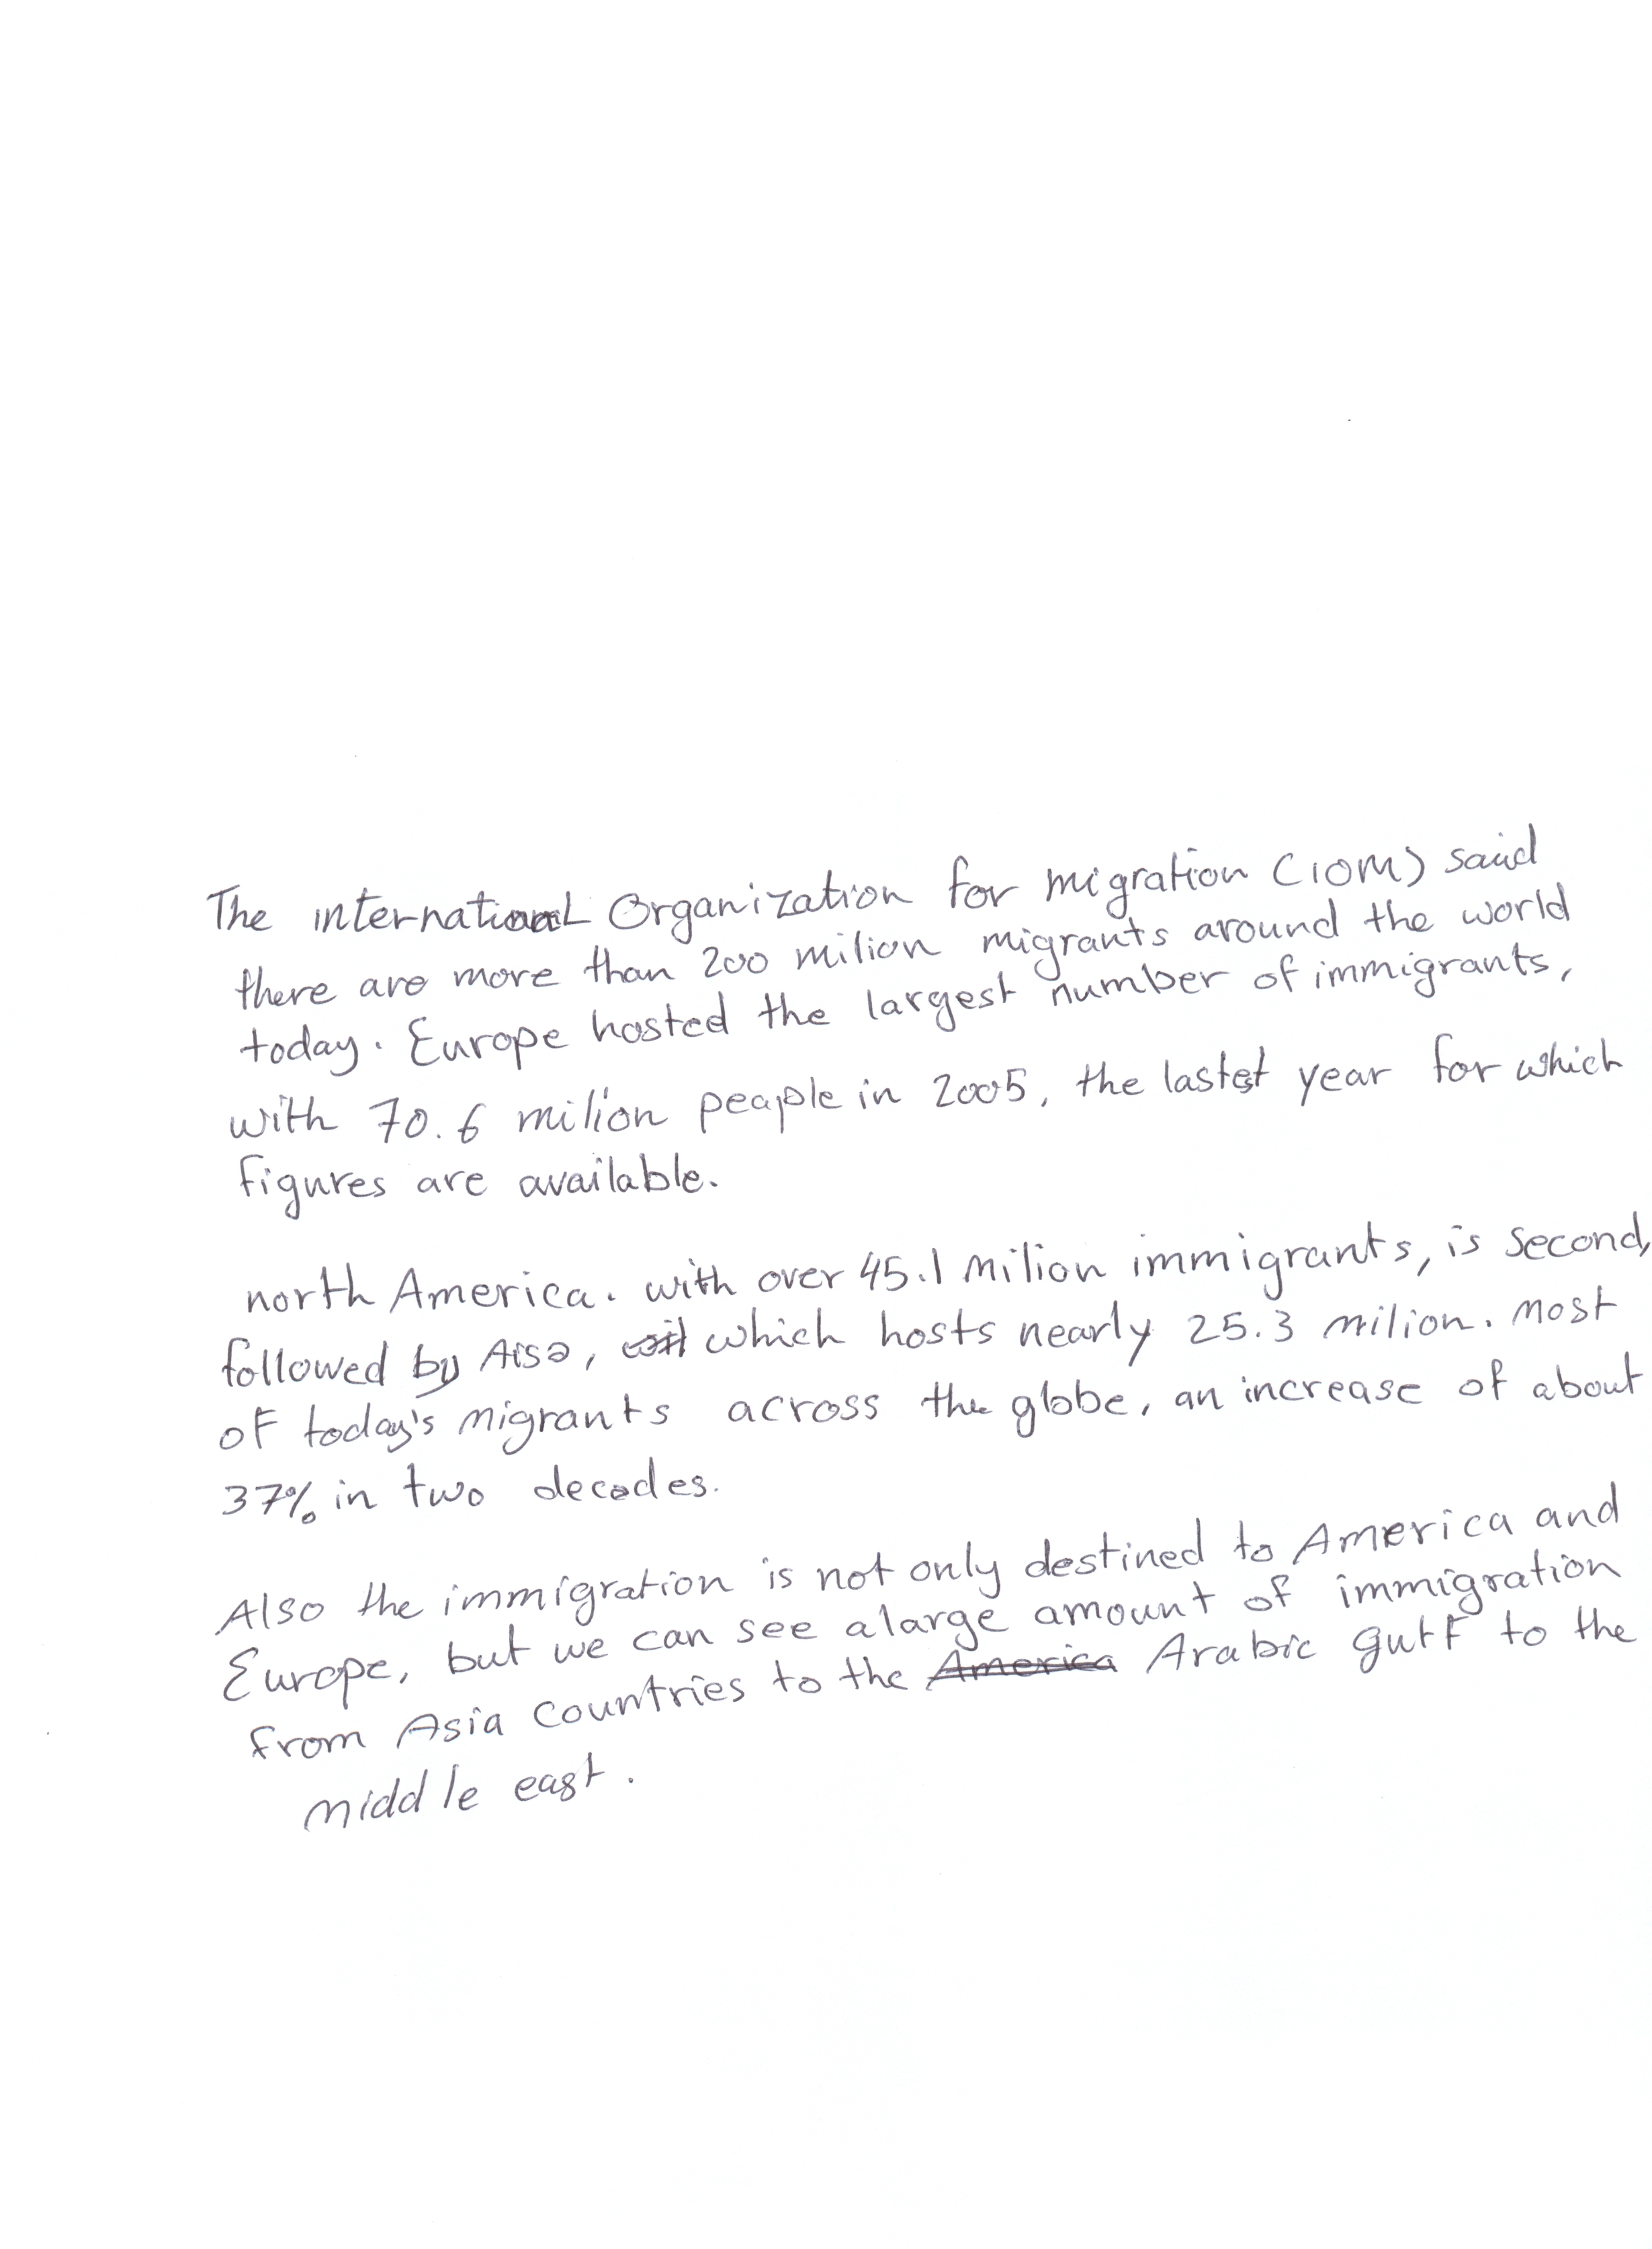 The international Organization for migration (IOM) said
there are more than 200 milion migrants around the world
today. Europe hosted the largest number of immigrants,
with 70.6 milion people in 2005, the lastest year for which
figures are available.
north America. with over 45.1 milion immigrants, is second,
followed by Aisa, which hosts nearly 25.3 milion. Most
of today's migrants across the globe, an increase of about
37% in two decades.
Also the immigration is not only destined to America and
Europe, but we can see alarge amount of immigration
from Asia countries to the America Arabic gulf to the
middle east.